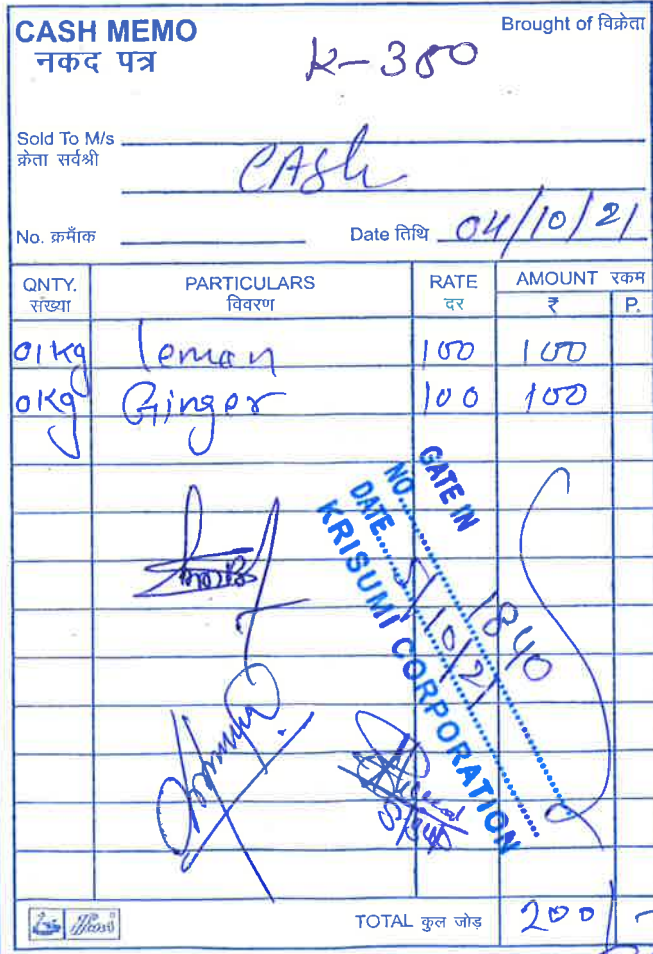 CASH MEMO
नकद पत्र
Brought of विक्रेता
K-380
Sold To M/s
क्रेता सर्वश्री
CASh
No. क्रमाँक
Date तिथि 04/10/21
QNTY. PARTICULARS RATE AMOUNT रकम
संख्या विवरण दर ₹ P.
01Kg leman 100 100
0Kg Ginger 100 100
GATE IN
NO. 1840
DATE 5/10/21
KRISUMI CORPORATION
TOTAL कुल जोड़ 200/-